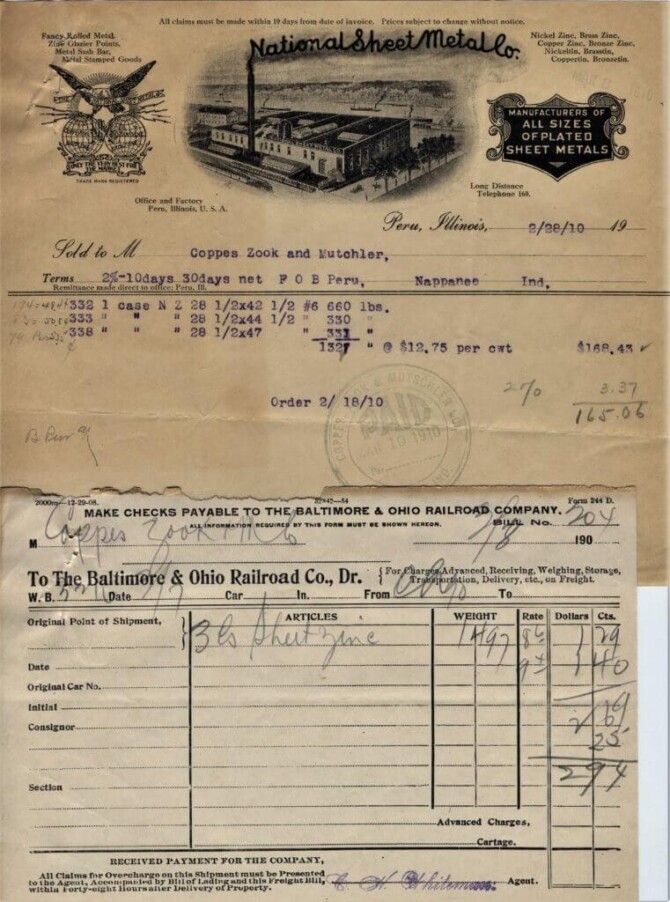 All claims must be made within 10 days from date of invoice. Prices subject to change without notice.
Fancy Rolled Metal.
Zinc Glazier Points,
Metal Sash Bar,
Metal Stamped Goods
National Sheet Metal Co.
Nickel Zinc, Brass Zinc,
Copper Zinc, Bronze Zinc,
Nickeltin, Brasstin,
Coppertin, Bronzetin.
MANUFACTURERS OF
ALL SIZES
OF PLATED
SHEET METALS
TRADE MARK REGISTERED
Office and Factory
Peru, Illinois, U. S. A.
Long Distance
Telephone 160.
Peru, Illinois, 2/28/10 19
Sold to M Coppes Zook and Mutchler,
Terms 2%-10days 30days net F O B Peru, Nappanee Ind.
Remittance made direct to office: Peru, Ill.
332 1 case N Z 28 1/2x42 1/2 #6 660 lbs.
333 " " " 28 1/2x44 1/2 " 330 "
338 " " " 28 1/2x47 " 331 "
1327 " @ $12.75 per cwt $168.43
2% 3.37
165.06
Order 2/ 18/10
COPPES, ZOOK & MUTSCHLER CO.
PAID
10 1910
IND.
2000m-12-29-08. Form 244 D.
MAKE CHECKS PAYABLE TO THE BALTIMORE & OHIO RAILROAD COMPANY.
ALL INFORMATION REQUIRED BY THIS FORM MUST BE SHOWN HEREON. BILL No. 204
M Coppes Zook M Co 3/8 190
To The Baltimore & Ohio Railroad Co., Dr. For Charges Advanced, Receiving, Weighing, Storage,
Transportation, Delivery, etc., on Freight.
W. B. Date Car In. From To
Original Point of Shipment, ARTICLES WEIGHT Rate Dollars Cts.
3 Cs Sheet zinc 1497 1 29
Date 1 40
Original Car No.
Initial 2 69
Consignor 25
2 94
Section
Advanced Charges,
Cartage.
RECEIVED PAYMENT FOR THE COMPANY,
All Claims for Overcharge on this Shipment must be Presented
to the Agent, Accompanied by Bill of Lading and this Freight Bill,
within Forty-eight Hours after Delivery of Property.
C. H. Whiteman Agent.